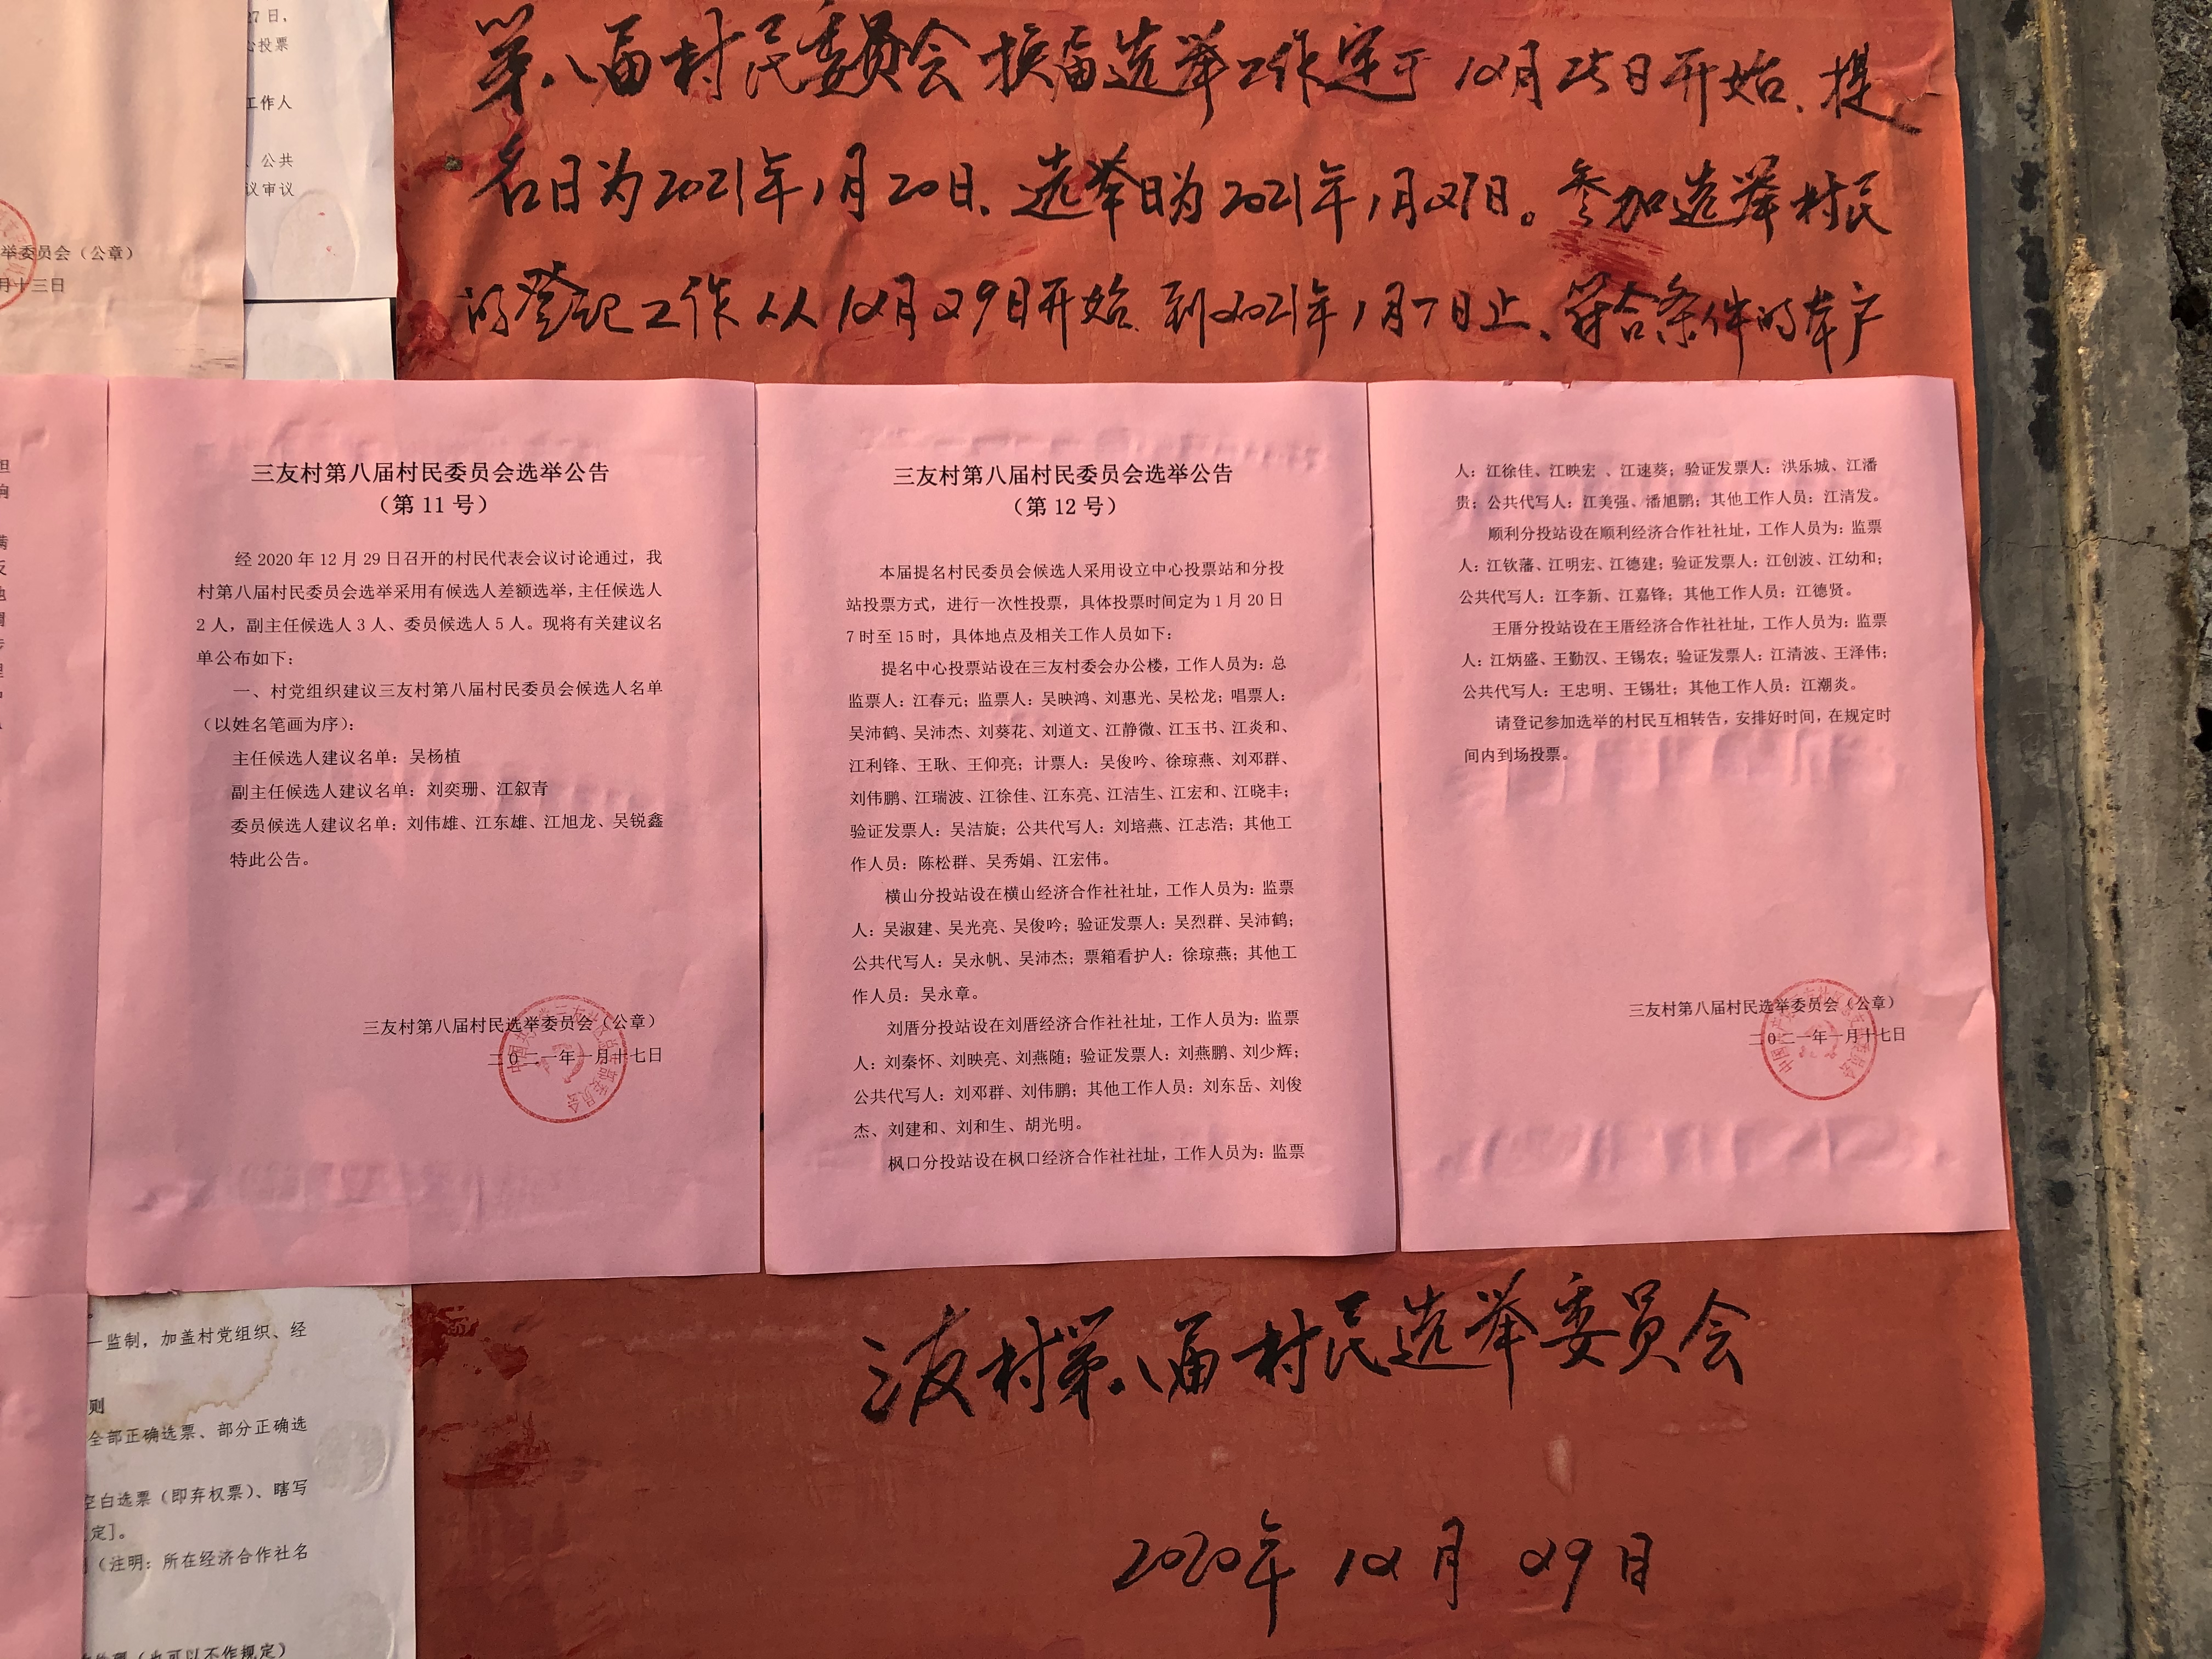 27日，
心投票
工作人
、公共
议审议
举委员会（公章）
月十三日
第八届村民委员会换届选举工作定于12月25日开始、提
名日为2021年1月20日、选举日为2021年1月27日。参加选举村民
的登记工作从12月29日开始到2021年1月7日止、符合条件的本户
三友村第八届村民委员会选举公告
（第 11 号）
经 2020 年 12 月 29 日召开的村民代表会议讨论通过，我
村第八届村民委员会选举采用有候选人差额选举，主任候选人
2 人，副主任候选人 3 人、委员候选人 5 人。现将有关建议名
单公布如下：
一、村党组织建议三友村第八届村民委员会候选人名单
（以姓名笔画为序）：
主任候选人建议名单：吴杨植
副主任候选人建议名单：刘奕珊、江叙青
委员候选人建议名单：刘伟雄、江东雄、江旭龙、吴锐鑫
特此公告。
三友村第八届村民选举委员会（公章）
二〇二一年一月十七日
三友村第八届村民委员会选举公告
（第 12 号）
本届提名村民委员会候选人采用设立中心投票站和分投
站投票方式，进行一次性投票，具体投票时间定为 1 月 20 日
7 时至 15 时，具体地点及相关工作人员如下：
提名中心投票站设在三友村委会办公楼，工作人员为：总
监票人：江春元；监票人：吴映鸿、刘惠光、吴松龙；唱票人：
吴沛鹤、吴沛杰、刘葵花、刘道文、江静微、江玉书、江炎和、
江利锋、王耿、王仰亮；计票人：吴俊吟、徐琼燕、刘邓群、
刘伟鹏、江瑞波、江徐佳、江东亮、江洁生、江宏和、江晓丰；
验证发票人：吴洁旋；公共代写人：刘培燕、江志浩；其他工
作人员：陈松群、吴秀娟、江宏伟。
横山分投站设在横山经济合作社社址，工作人员为：监票
人：吴淑建、吴光亮、吴俊吟；验证发票人：吴烈群、吴沛鹤；
公共代写人：吴永帆、吴沛杰；票箱看护人：徐琼燕；其他工
作人员：吴永章。
刘厝分投站设在刘厝经济合作社社址，工作人员为：监票
人：刘秦怀、刘映亮、刘燕随；验证发票人：刘燕鹏、刘少辉；
公共代写人：刘邓群、刘伟鹏；其他工作人员：刘东岳、刘俊
杰、刘建和、刘和生、胡光明。
枫口分投站设在枫口经济合作社社址，工作人员为：监票
人：江徐佳、江映宏 、江速葵；验证发票人：洪乐城、江潘
贵；公共代写人：江美强、潘旭鹏；其他工作人员：江清发。
顺利分投站设在顺利经济合作社社址，工作人员为：监票
人：江钦藩、江明宏、江德建；验证发票人：江创波、江幼和；
公共代写人：江李新、江嘉锋；其他工作人员：江德贤。
王厝分投站设在王厝经济合作社社址，工作人员为：监票
人：江炳盛、王勤汉、王锡农；验证发票人：江清波、王泽伟；
公共代写人：王忠明、王锡壮；其他工作人员：江潮炎。
请登记参加选举的村民互相转告，安排好时间，在规定时
间内到场投票。
三友村第八届村民选举委员会（公章）
二〇二一年一月十七日
一监制，加盖村党组织、经
则
全部正确选票、部分正确选
空白选票（即弃权票）、瞎写
定］。
（注明：所在经济合作社名
（也可以不作规定）
三友村第八届村民选举委员会
2020年 12月 29日